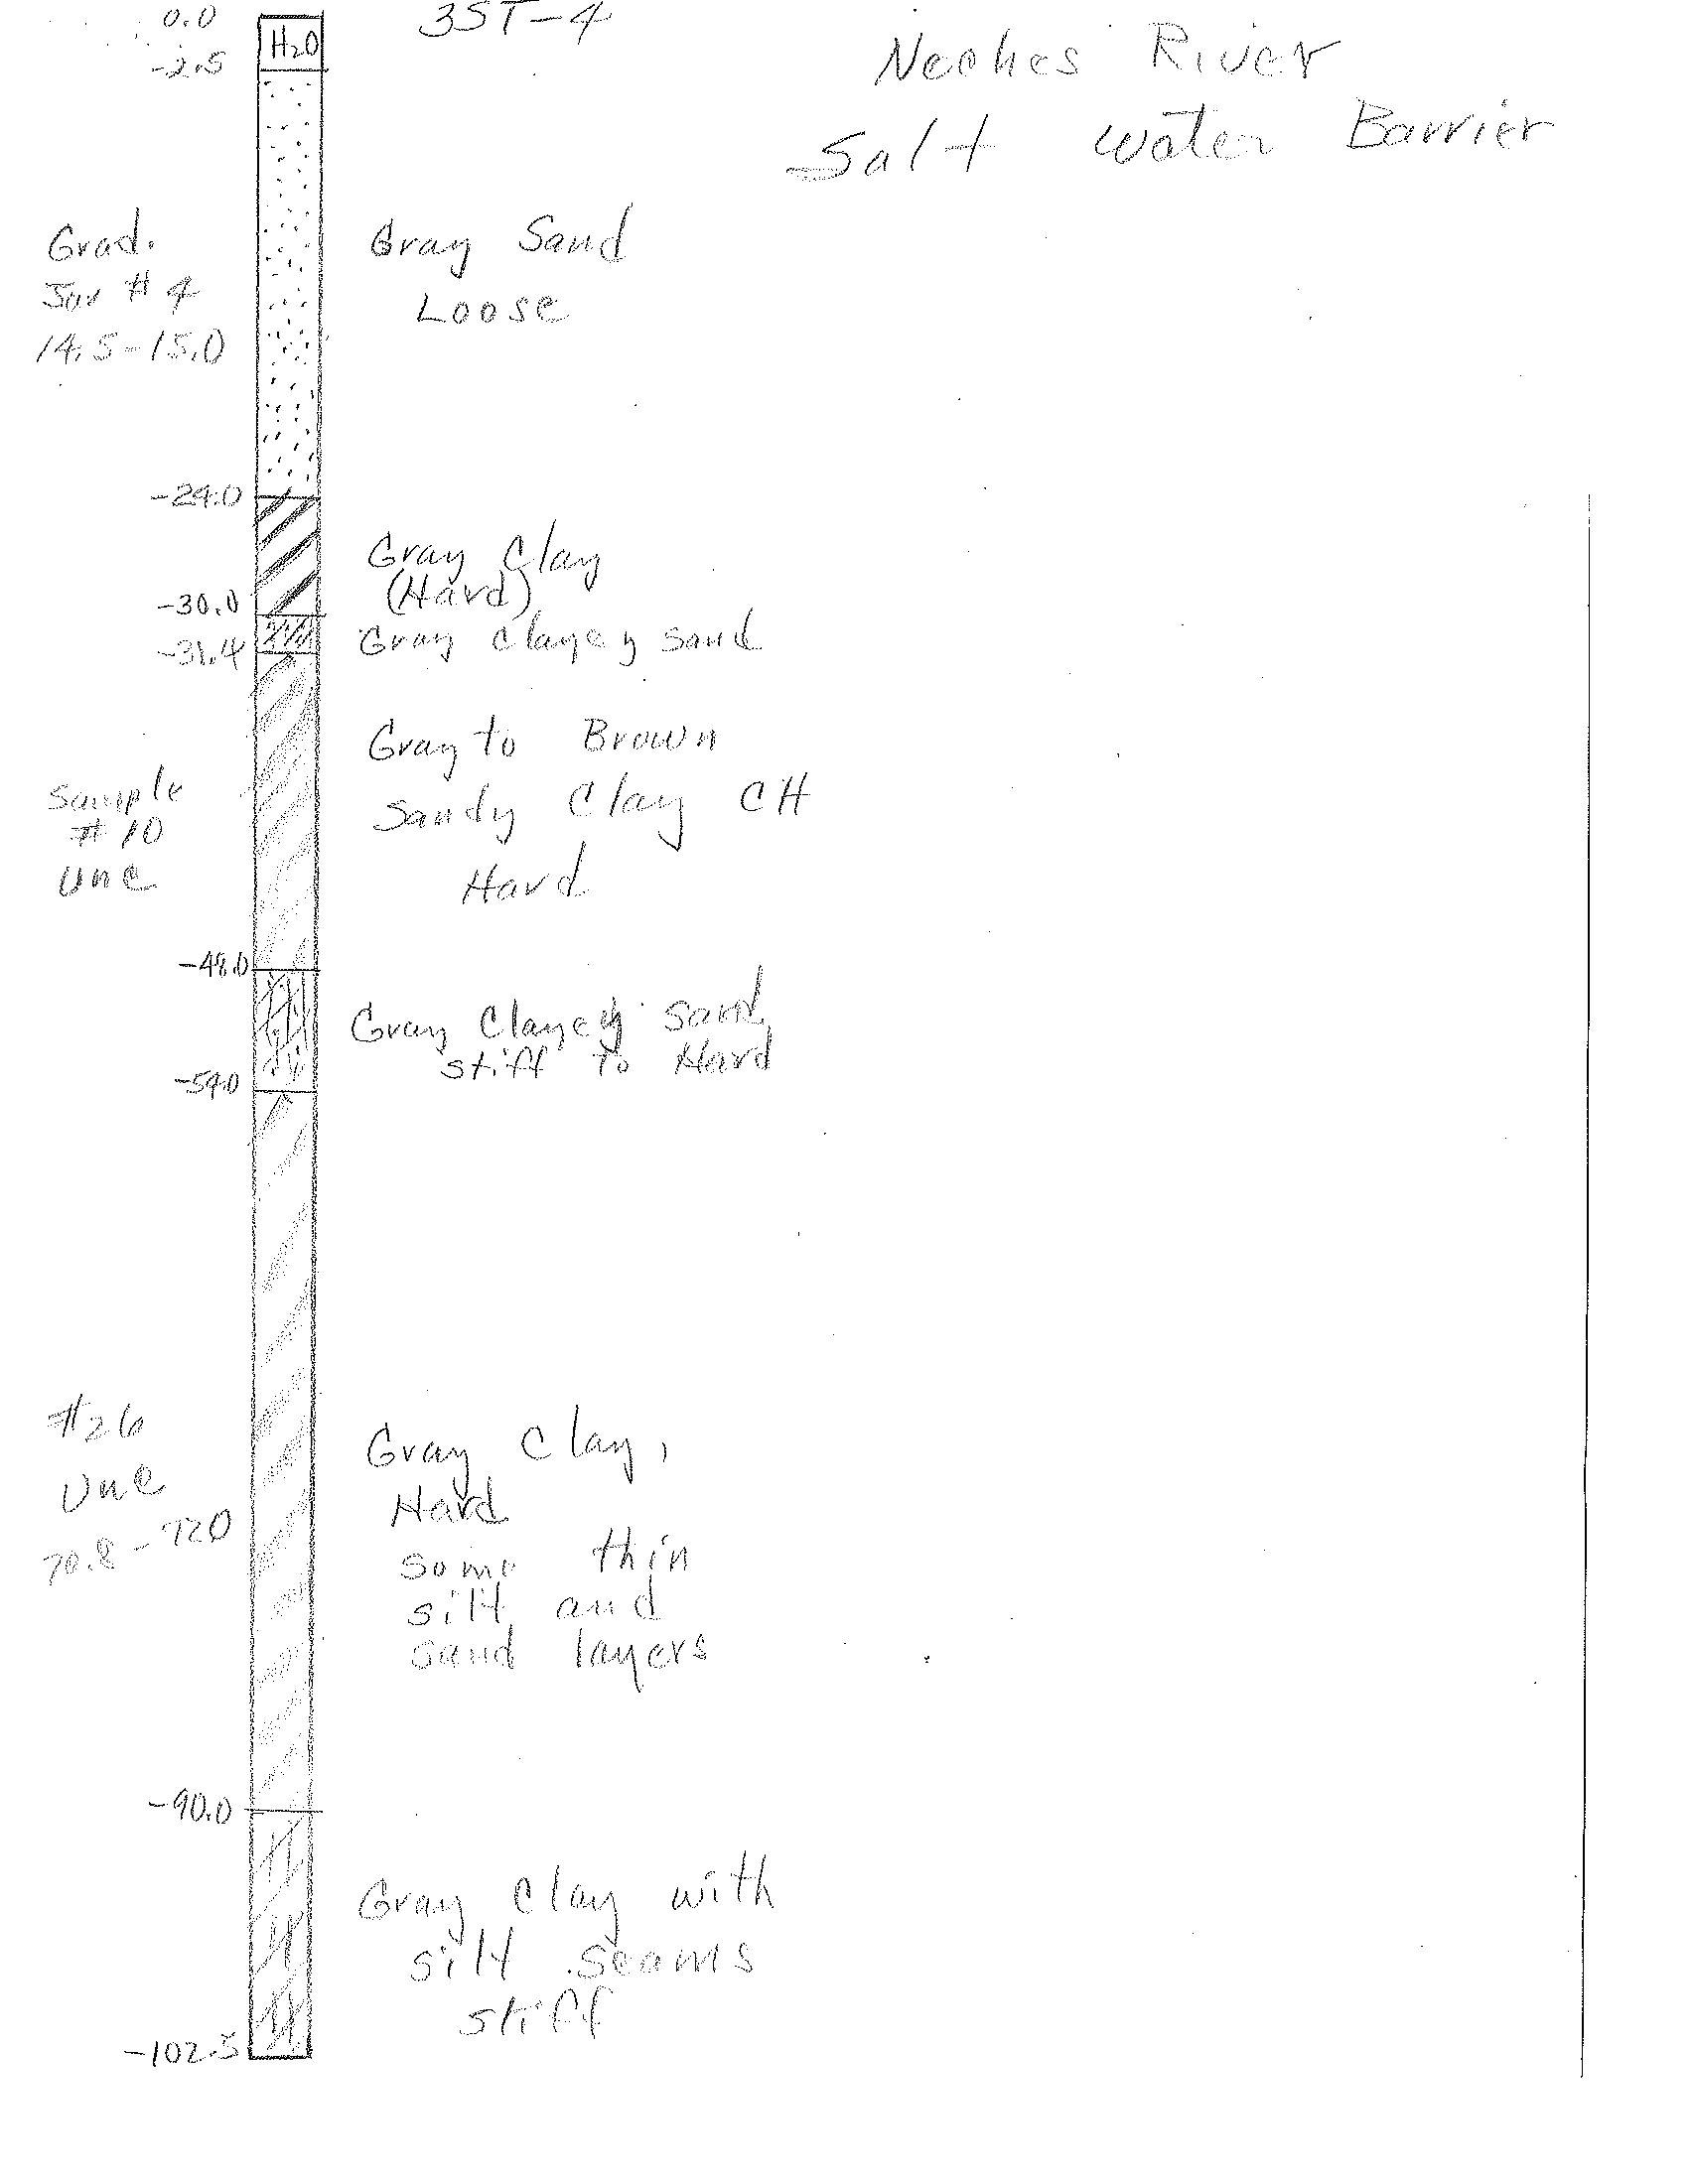 0.0
H2O
3ST-4
Neches River
-2.5
Salt Water Barrier
Grad.
Jar #4
14.5-15.0
Gray Sand
Loose
-24.0
Gray Clay
(Hard)
-30.0
Gray clayey sand
-31.4
Gray to Brown
Sandy Clay CH
Hard
Sample
#10
Unc
-48.0
Gray Clayey sand
stiff to Hard
-54.0
#26
Unc
70.8-72.0
Gray Clay,
Hard
some thin
silt and
sand layers
-90.0
Gray Clay with
silt seams
stiff
-102.5